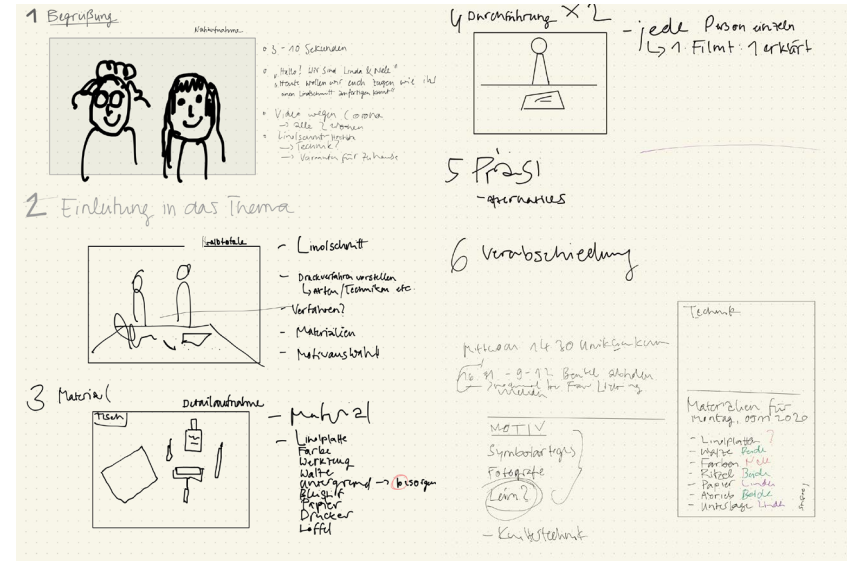 1 Begrüßung
Nahaufnahme
5-10 Sekunden
"Hallo! Wir sind Linda & Nele"
"Heute wollen wir euch zeigen wie ihr
einen Linolschnitt anfertigen könnt"
Video wegen Corona
→ alle 2 Wochen
Linolschnitt
→ Technik?
→ Varianten für Zuhause
2 Einleitung in das Thema
Halbtotale
- Linolschnitt
- Druckverfahren vorstellen
↳ Arten/Techniken etc
- Verfahren?
- Materialien
- Motivauswahl
3 Material
Detailaufnahme
Tisch
- Material
- Linolplatte
Farbe
Werkzeug
Walze
Untergrund → besorgen
Bleistift
Papier
Drucker
Löffel
4 Durchführung x2
- jede Person einzeln
↳ 1 Filmt 1 erklärt
5 Präsi
- alternatives
6 Verabschiedung
14.30
- 9-12 Beutel abholen
melden
MOTIV
Symbolartiges
Fotografie
Lein?
Technik
Materialien für
Montag, 2020
- Linolplatten ?
- Walze Beide
- Farben Nele
- Ritzel Beide
- Papier Linda
- Abrieb Beide
- Unterlage Linda